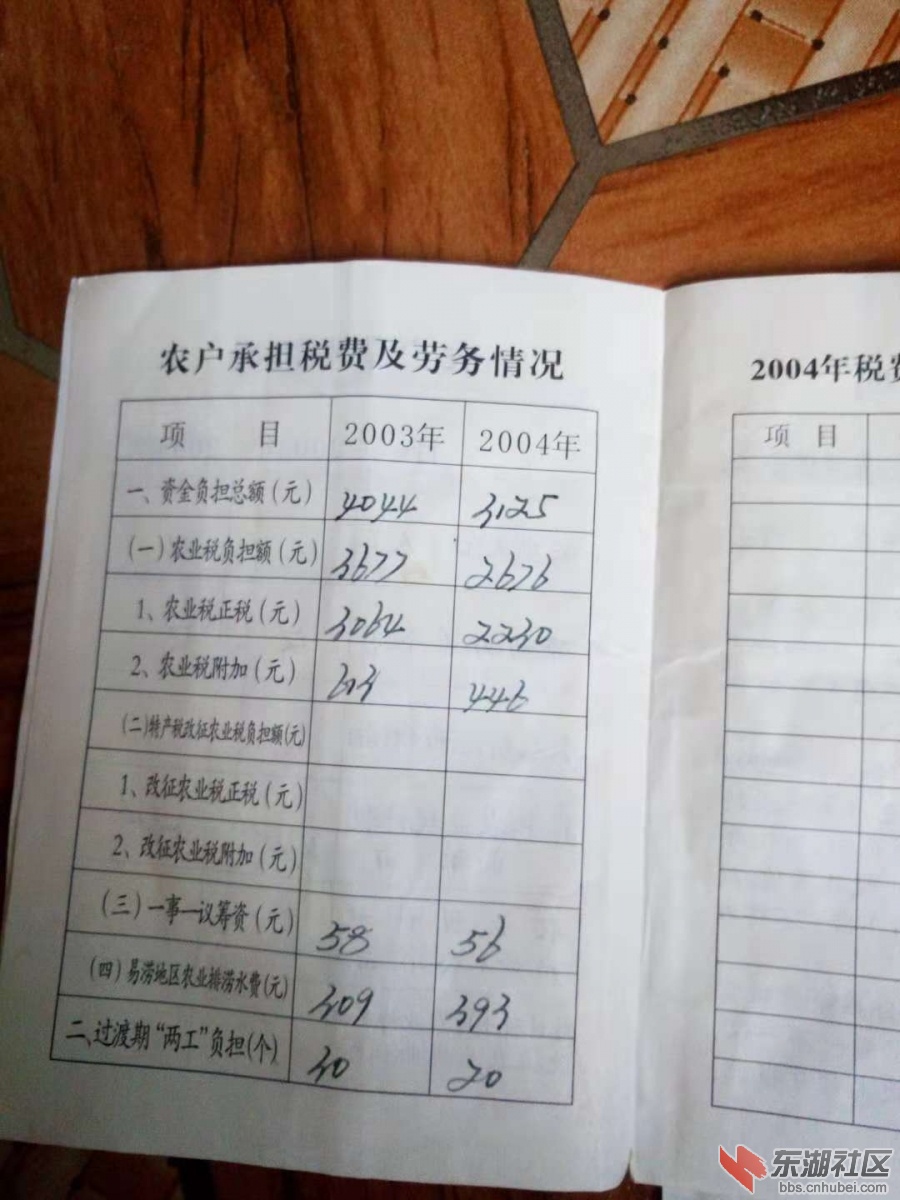 农户承担税费及劳务情况
项 目 2003年 2004年
一、资金负担总额(元) 4044 3125
(一)农业税负担额(元) 3677 2676
1、农业税正税(元) 3064 2230
2、农业税附加(元) 613 446
(二)特产税改征农业税负担额(元)
1、改征农业税正税(元)
2、改征农业税附加(元)
(三)一事一议筹资(元) 58 56
(四)易涝地区农业排涝水费(元) 309 393
二、过渡期“两工”负担(个) 30 20
2004年税费
项 目
东湖社区
bbs.cnhubei.com